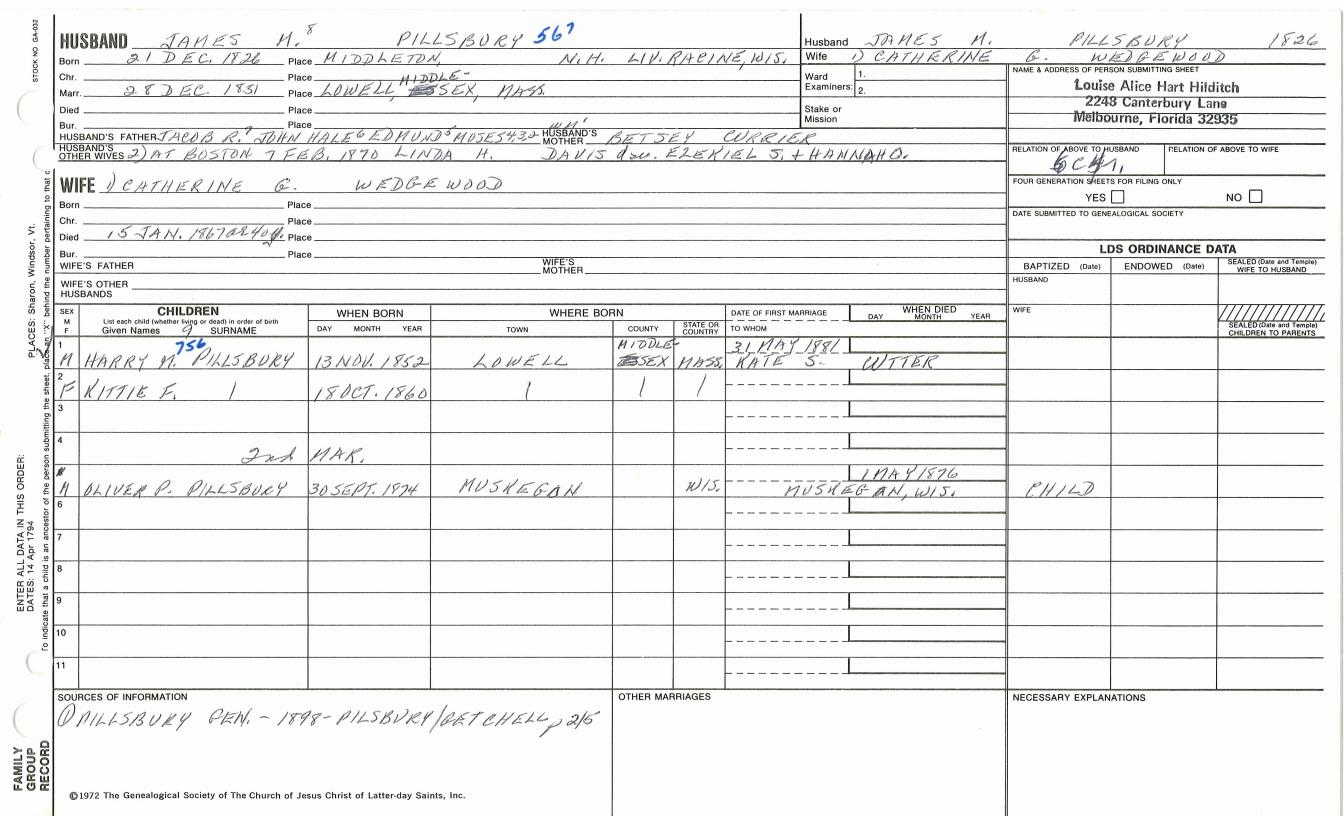 STOCK NO. GA-032
HUSBAND JAMES M.⁸ PILLSBURY 567
Born 21 DEC. 1826 Place MIDDLETON, N.H. LIV. RACINE, WIS.
Chr. Place MIDDLE-
Marr. 28 DEC. 1851 Place LOWELL, SEX, MASS.
Died Place
Bur. Place WM¹
HUSBAND'S FATHER JACOB R.⁷ JOHN HALE⁶ EDMUND⁵ MOSES4,3,2 HUSBAND'S MOTHER BETSEY CURRIER
HUSBAND'S OTHER WIVES 2) AT BOSTON 7 FEB. 1870 LINDA H. DAVIS dau. EZEKIEL S. + HANNAH O.
WIFE 1) CATHERINE G. WEDGEWOOD
Born Place
Chr. Place
Died 15 JAN. 1867 ae 40y. Place
Bur. Place
WIFE'S FATHER WIFE'S MOTHER
WIFE'S OTHER HUSBANDS
Husband JAMES M. PILLSBURY 1826
Wife 1) CATHERINE G. WEDGEWOOD
Ward Examiners: 1.
2.
Stake or Mission
NAME & ADDRESS OF PERSON SUBMITTING SHEET
Louise Alice Hart Hilditch
2248 Canterbury Lane
Melbourne, Florida 32935
RELATION OF ABOVE TO HUSBAND RELATION OF ABOVE TO WIFE
FOUR GENERATION SHEETS FOR FILING ONLY
YES NO
DATE SUBMITTED TO GENEALOGICAL SOCIETY
LDS ORDINANCE DATA
BAPTIZED (Date) ENDOWED (Date) SEALED (Date and Temple) WIFE TO HUSBAND
HUSBAND
WIFE
SEALED (Date and Temple) CHILDREN TO PARENTS
SEX M F
CHILDREN
List each child (whether living or dead) in order of birth
Given Names 9 SURNAME
WHEN BORN
DAY MONTH YEAR
WHERE BORN
TOWN COUNTY STATE OR COUNTRY
DATE OF FIRST MARRIAGE
TO WHOM
WHEN DIED
DAY MONTH YEAR
1 756 MIDDLE- 31 MAY 1881
M HARRY M. PILLSBURY 13 NOV. 1852 LOWELL SEX MASS. KATE S. UTTER
2
F KITTIE F. | 18 OCT. 1860 | | |
3
4
2nd MAR.
1 MAY 1876
M OLIVER P. PILLSBURY 30 SEPT. 1874 MUSKEGAN WIS. MUSKEGAN, WIS. CHILD
6
7
8
9
10
11
SOURCES OF INFORMATION OTHER MARRIAGES NECESSARY EXPLANATIONS
① PILLSBURY GEN. - 1898 - PILSBURY/GETCHELL, p 215
©1972 The Genealogical Society of The Church of Jesus Christ of Latter-day Saints, Inc.
FAMILY GROUP RECORD
ENTER ALL DATA IN THIS ORDER:
DATES: 14 Apr 1794
PLACES: Sharon, Windsor, Vt.
To indicate that a child is an ancestor of the person submitting the sheet, place an "X" behind the number pertaining to that c